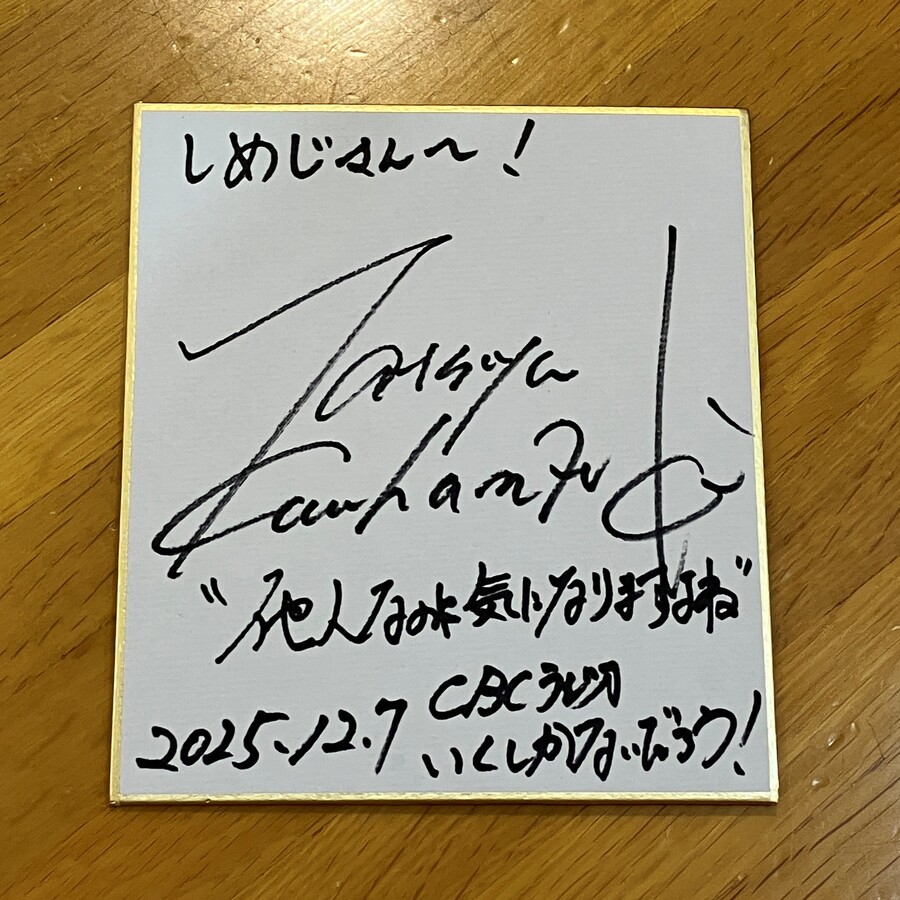 しめじさん〜!
Tatsuya
"他人なのに気になりますよね"
CBCラジオ
2025.12.7 いくしかないだろう!